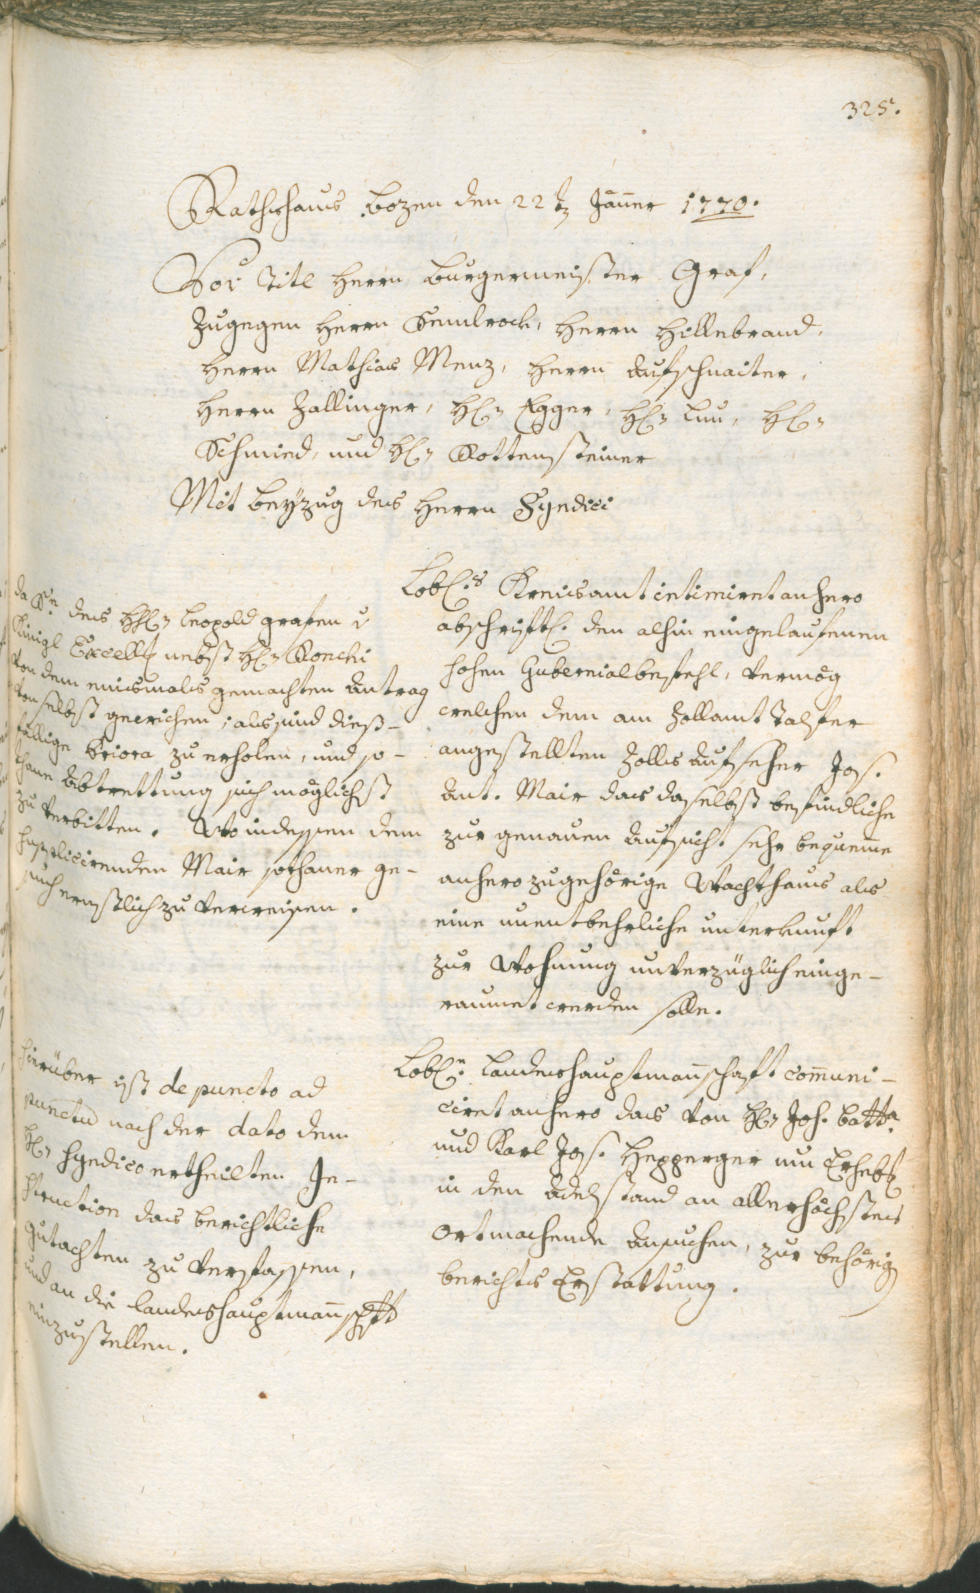 325.
Rathshaus Bozen den 22 tz Jäner 1770.
Vor Titl Herrn Burgermeister Graf,
Zugegen Herrn Semlrock, Herrn Hillebrand,
Herrn Mathias Menz, Herrn Aufschnaiter,
Herrn Zallinger, H: Egger, H: Luu, H:
Schmied, und H: Rottensteiner
Mit beÿzug des Herrn Syndici
Lobl:s Kreisamt intimiret anhero
abschriftl: den alhin eingelaufenen
hohen Gubernialbefehl, vermög
welchen dem am Zollamt Talfer
angestellten Zollsaufseher Jos.
Ant. Mair das daselbst befindliche
zur genauen Aufsicht sehr bequeme
anhero zugehörige Wachthaus als
eine unentbehrliche unterkunft
zur Wohnung unverzüglich einge-
raumet werden solle.
da Sr des H: Leopold grafen v
Künigl Excell: nebst H: Ronchi
von dem einsmals gemachten Antrag
von selbst gewichen; als sind dieß-
fällige Priora zu erholen, und so-
thane Abtrettung sich möglichst
zu verbitten. Wo indessen dem
supplicirenden Mair sothaner ge-
such ernstlich zu verweisen.
Lobl:e Landeshauptmanschaft comuni-
ciret anhero das von H: Joh. Batta
und Karl Jos. Hepperger um Erheb:
in den Adelstand an allerhöchsten
Ort machende Ansuchen, zur behörig
berichts Erstattung.
hierüber ist de puncto ad
punctu nach der dato dem
H: Syndico ertheilten In-
struction das berichtliche
gutachten zu verfassen,
und an die Landeshauptmanschaft
einzustellen.